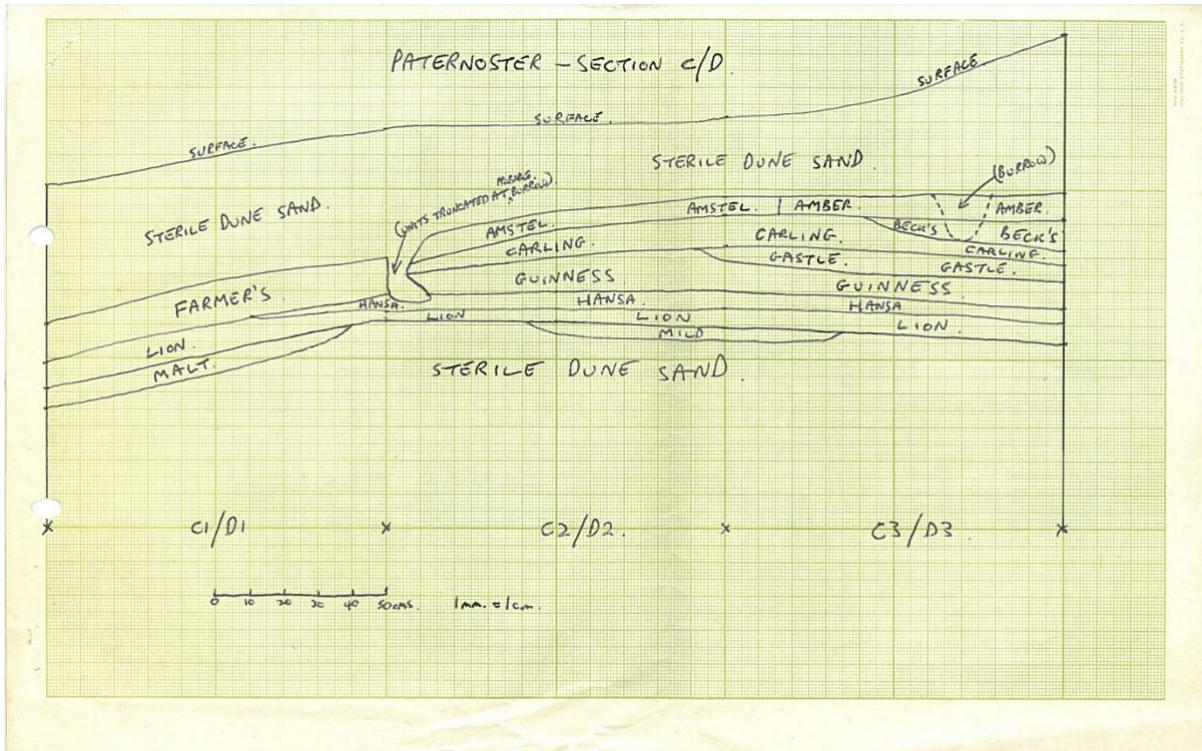 PATERNOSTER - SECTION C/D.
SURFACE.
SURFACE.
SURFACE.
STERILE DUNE SAND.
(BURROW)
STERILE DUNE SAND.
(UNITS TRUNCATED AT BURROW).
AMSTEL.
AMSTEL.
AMBER.
AMBER.
BECK'S
BECK'S
CARLING.
CARLING.
CARLING.
GASTLE.
GASTLE.
GUINNESS
GUINNESS
FARMER'S
HANSA.
HANSA
HANSA
LION
LION
LION.
LION.
MILD
MALT.
STERILE DUNE SAND.
C1/D1
C2/D2.
C3/D3.
0 10 20 30 40 50cms.
1mm. = 1cm.